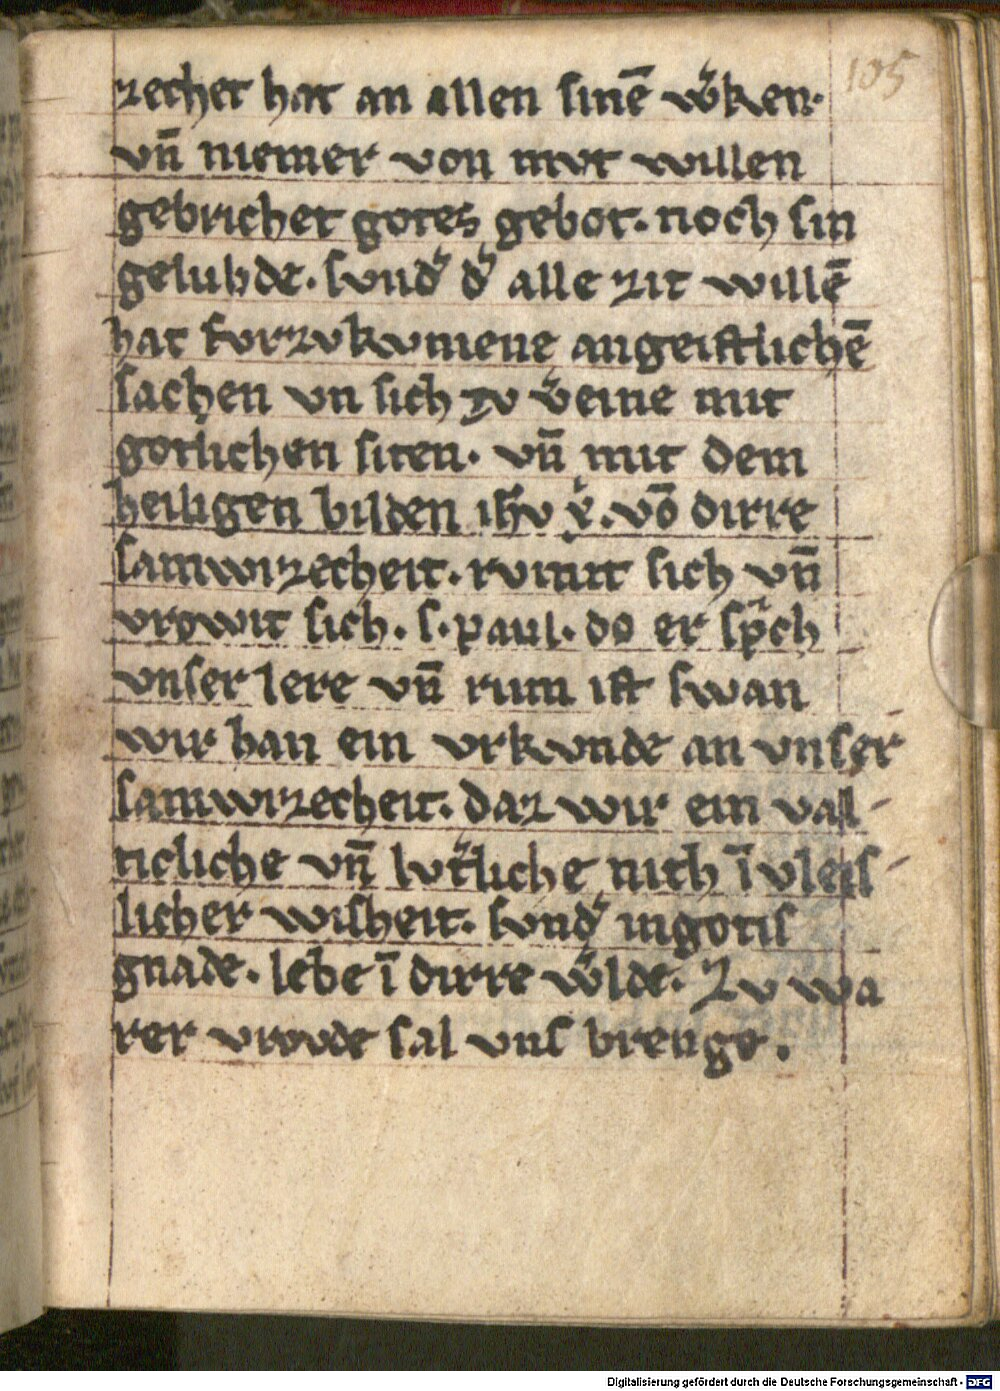 105
zechet hat an allen sinē w̾ken·
vn̄ niemer von mvt willen
gebrichet gotes gebot· noch sin
gelubde· svnd̾ d̾ alle zit willē
hat fvrzvkvmene angeistlichē
sachen vn sich zv v̾eine mit
gotlichen siten· vn̄ mit dem
heiligen bilden ih̄v x̄· vō dirre
samwizecheit· rvmit sich vn̄
vrowit sich· s· paul· do er sp̾ch
vnser lere vn̄ rum ist swan
wir han ein vrkvnde an vnser
samwizecheit· daz wir ein val-
ticliche vn̄ lvt̾liche nith ī vleis-
licher wisheit· svnd̾ ingotis
gnade· lebe ī dirre w̾lde· Zv wa
rer vrovde sal vns brenge.
Digitalisierung gefördert durch die Deutsche Forschungsgemeinschaft - DFG